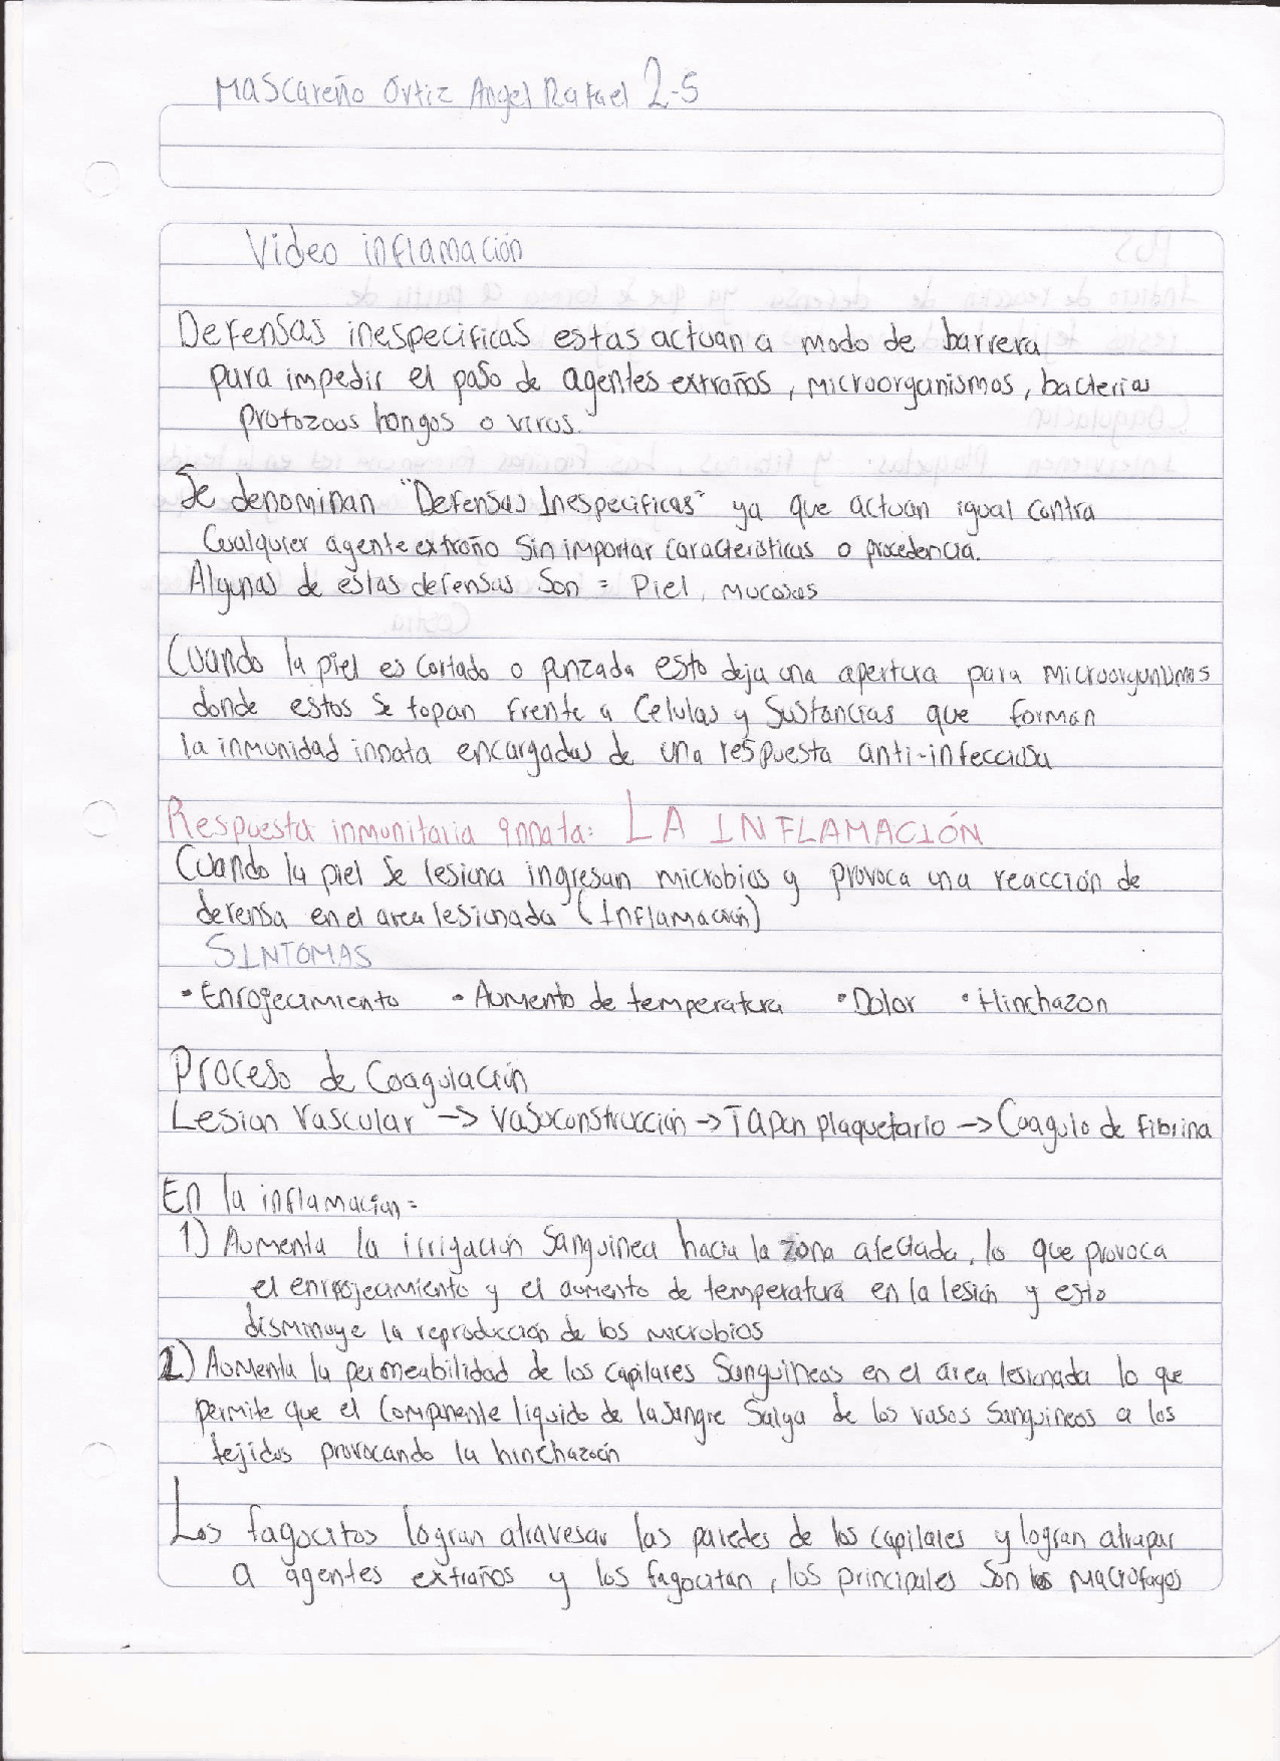 Mascareño Ortiz Angel Rafael 2-5
Video inflamación
Defensas inespecificas estas actuan a modo de barrera
para impedir el paso de agentes extraños, microorganismos, bacterias
protozoos hongos o virus.
Se denominan "Defensas Inespecificas" ya que actuan igual contra
Cualquier agente extraño sin importar caracteristicas o procedencia.
Algunas de estas defensas son = Piel, mucosas
Cuando la piel es cortado o punzada esto deja una apertura para microorganismos
donde estos se topan frente a Celulas y Sustancias que forman
la inmunidad innata encargadas de una respuesta anti-infecciosa
Respuesta inmunitaria innata: LA INFLAMACIÓN
Cuando la piel se lesiona ingresan microbios y provoca una reacción de
defensa en el area lesionada (Inflamación)
SINTOMAS
• Enrojecimiento • Aumento de temperatura • Dolor • Hinchazon
Proceso de Coagulación
Lesion vascular -> vasoconstrucción -> Tapon plaquetario -> Coagulo de fibrina
En la inflamacion =
1) Aumenta la irrigación Sanguinea hacia la zona afectada, lo que provoca
el enrojecimiento y el aumento de temperatura en la lesión y esto
disminuye la reproducción de los microbios
2) Aumenta la permeabilidad de los capilares Sanguineos en el area lesionada lo que
permite que el componente liquido de la sangre salga de los vasos sanguineos a los
tejidos provocando la hinchazoón
Los fagocitos logran atravesar las paredes de los capilares y logran atrapar
a agentes extraños y los fagocitan, los principales son los macrofagos